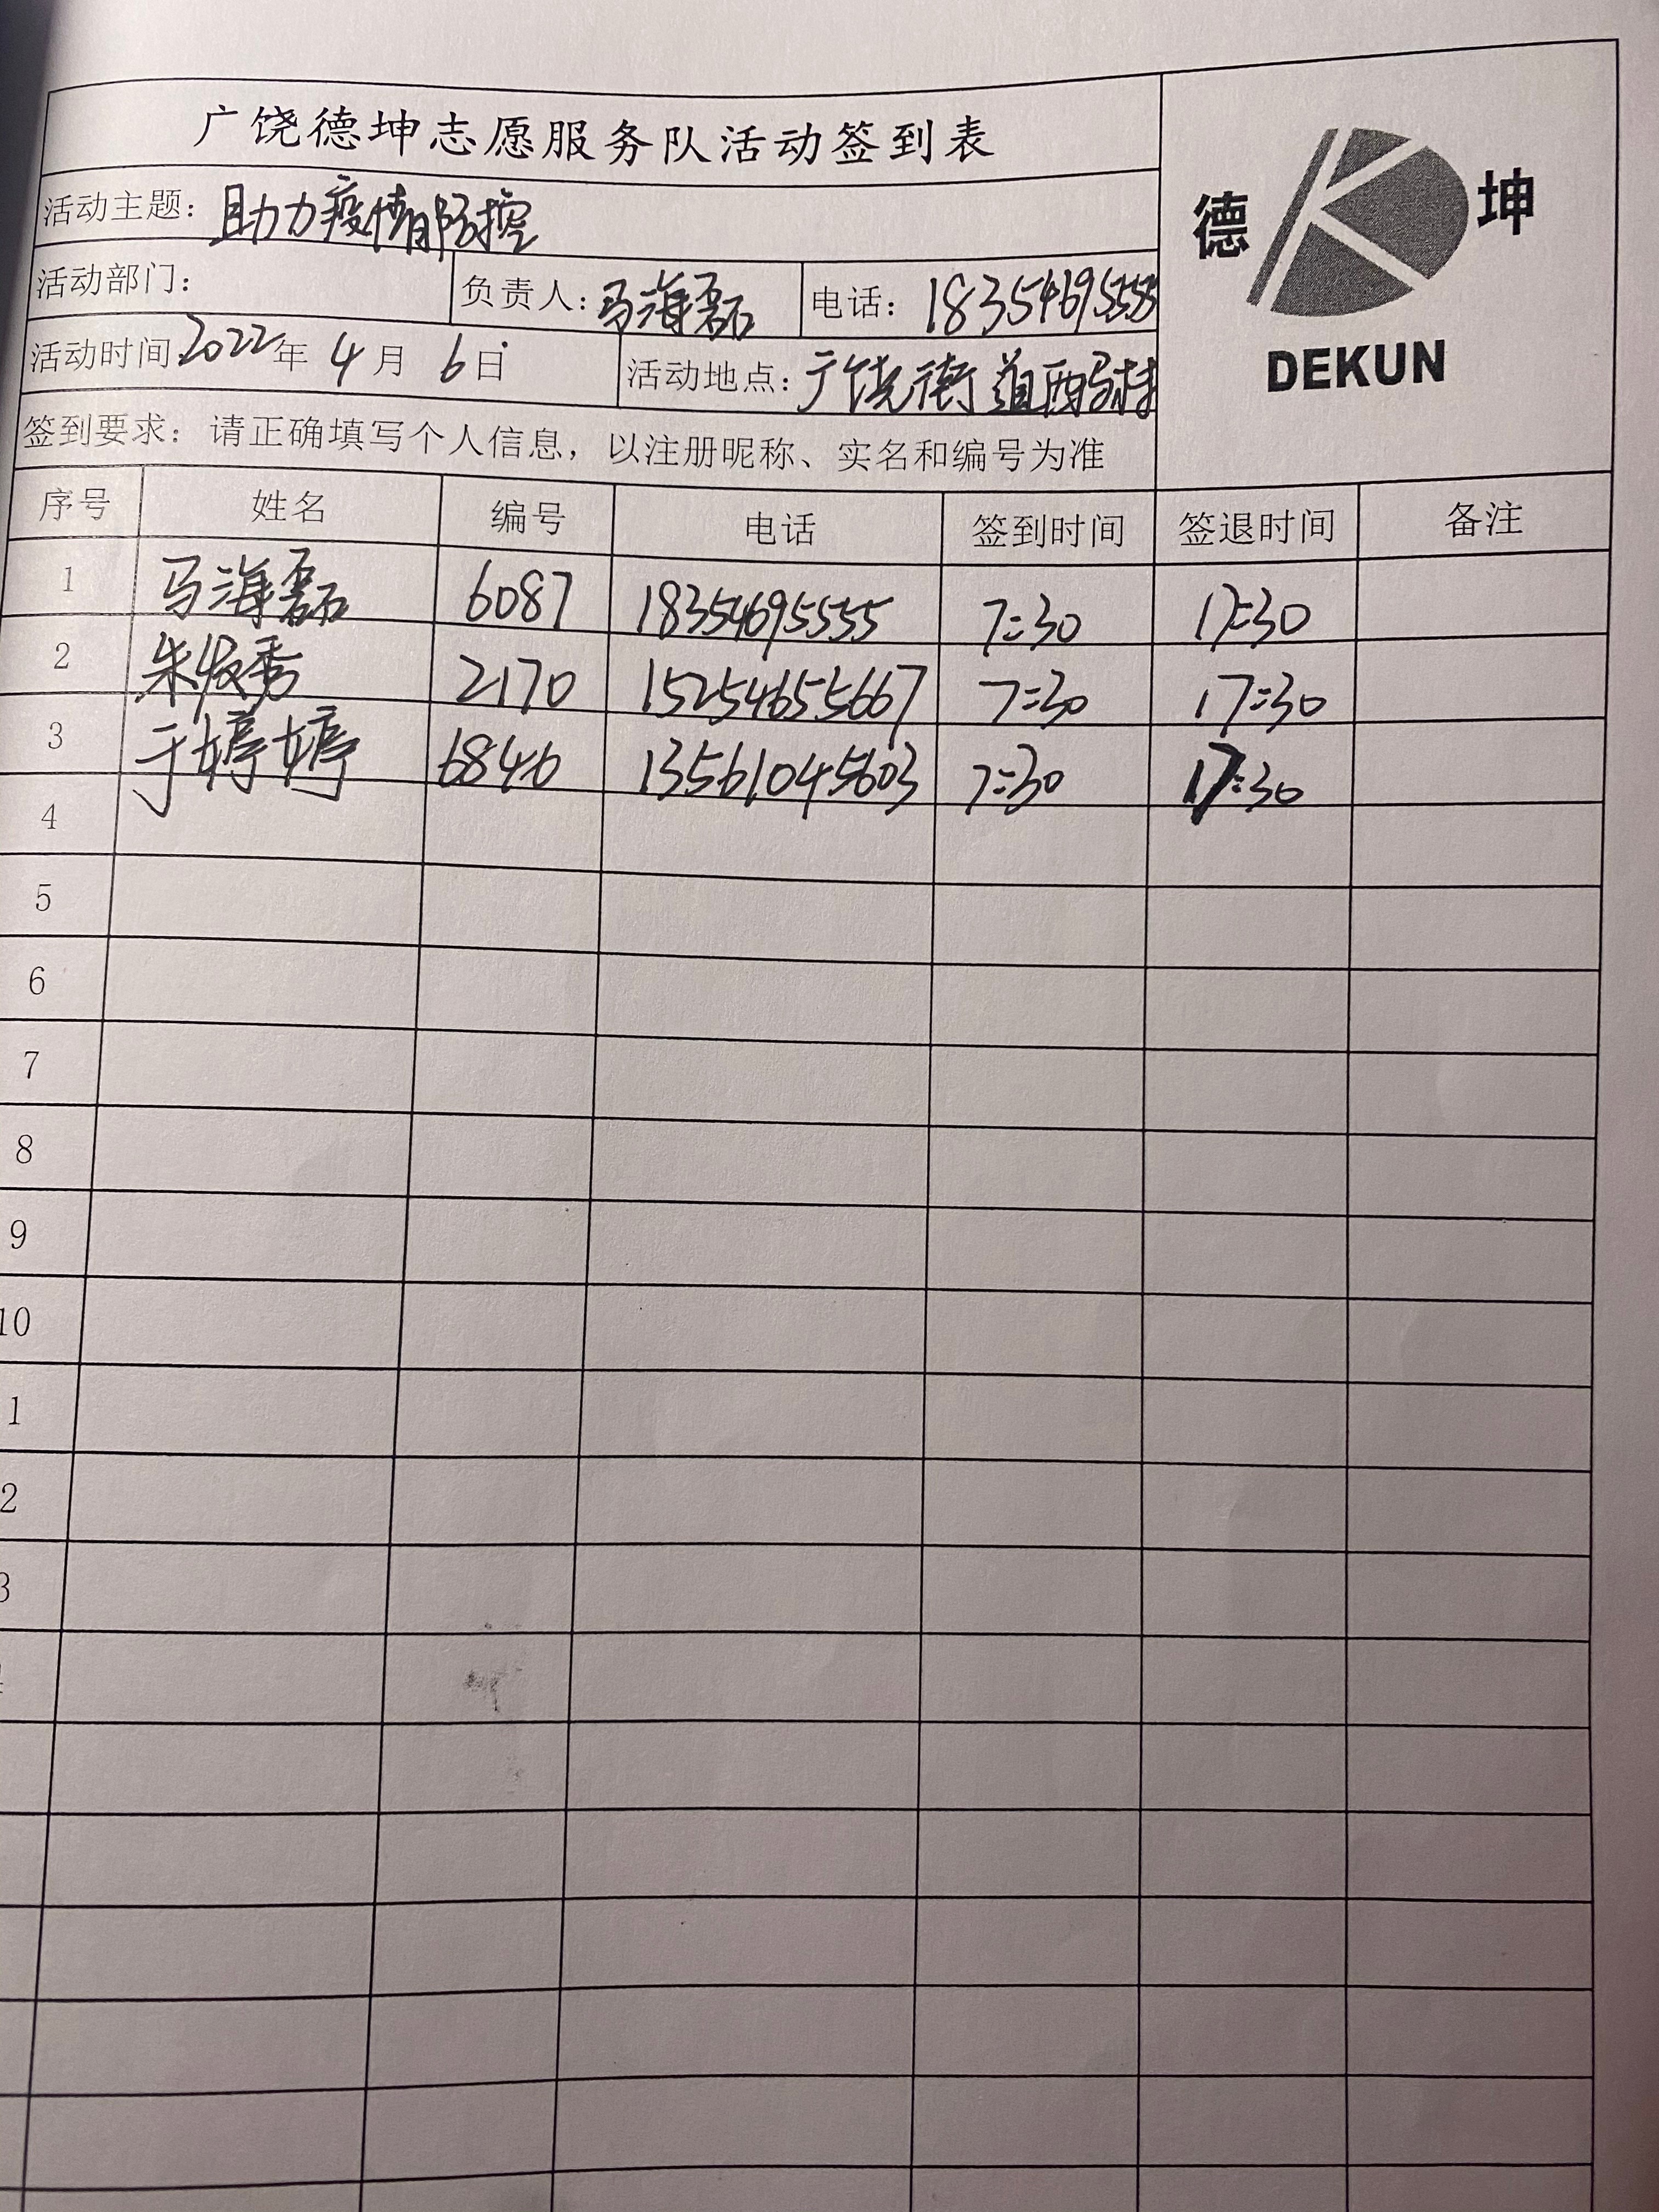 广饶德坤志愿服务队活动签到表
德 坤
DEKUN
活动主题：助力疫情防控
活动部门： 负责人：马海磊 电话：18354695555
活动时间 2022年 4月 6日 活动地点：广饶街道西马村
签到要求：请正确填写个人信息，以注册昵称、实名和编号为准
序号 姓名 编号 电话 签到时间 签退时间 备注
1 马海磊 6087 18354695555 7:30 17:30
2 朱秀 2170 15254655667 7:30 17:30
3 于婷婷 6846 13561045603 7:30 17:30
4
5
6
7
8
9
10
1
2
3